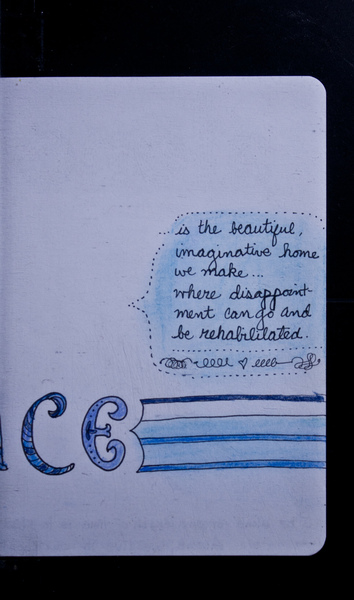 is the beautiful,
imaginative home
we make...
where disappoint-
ment can go and
be rehabilitated.
CE